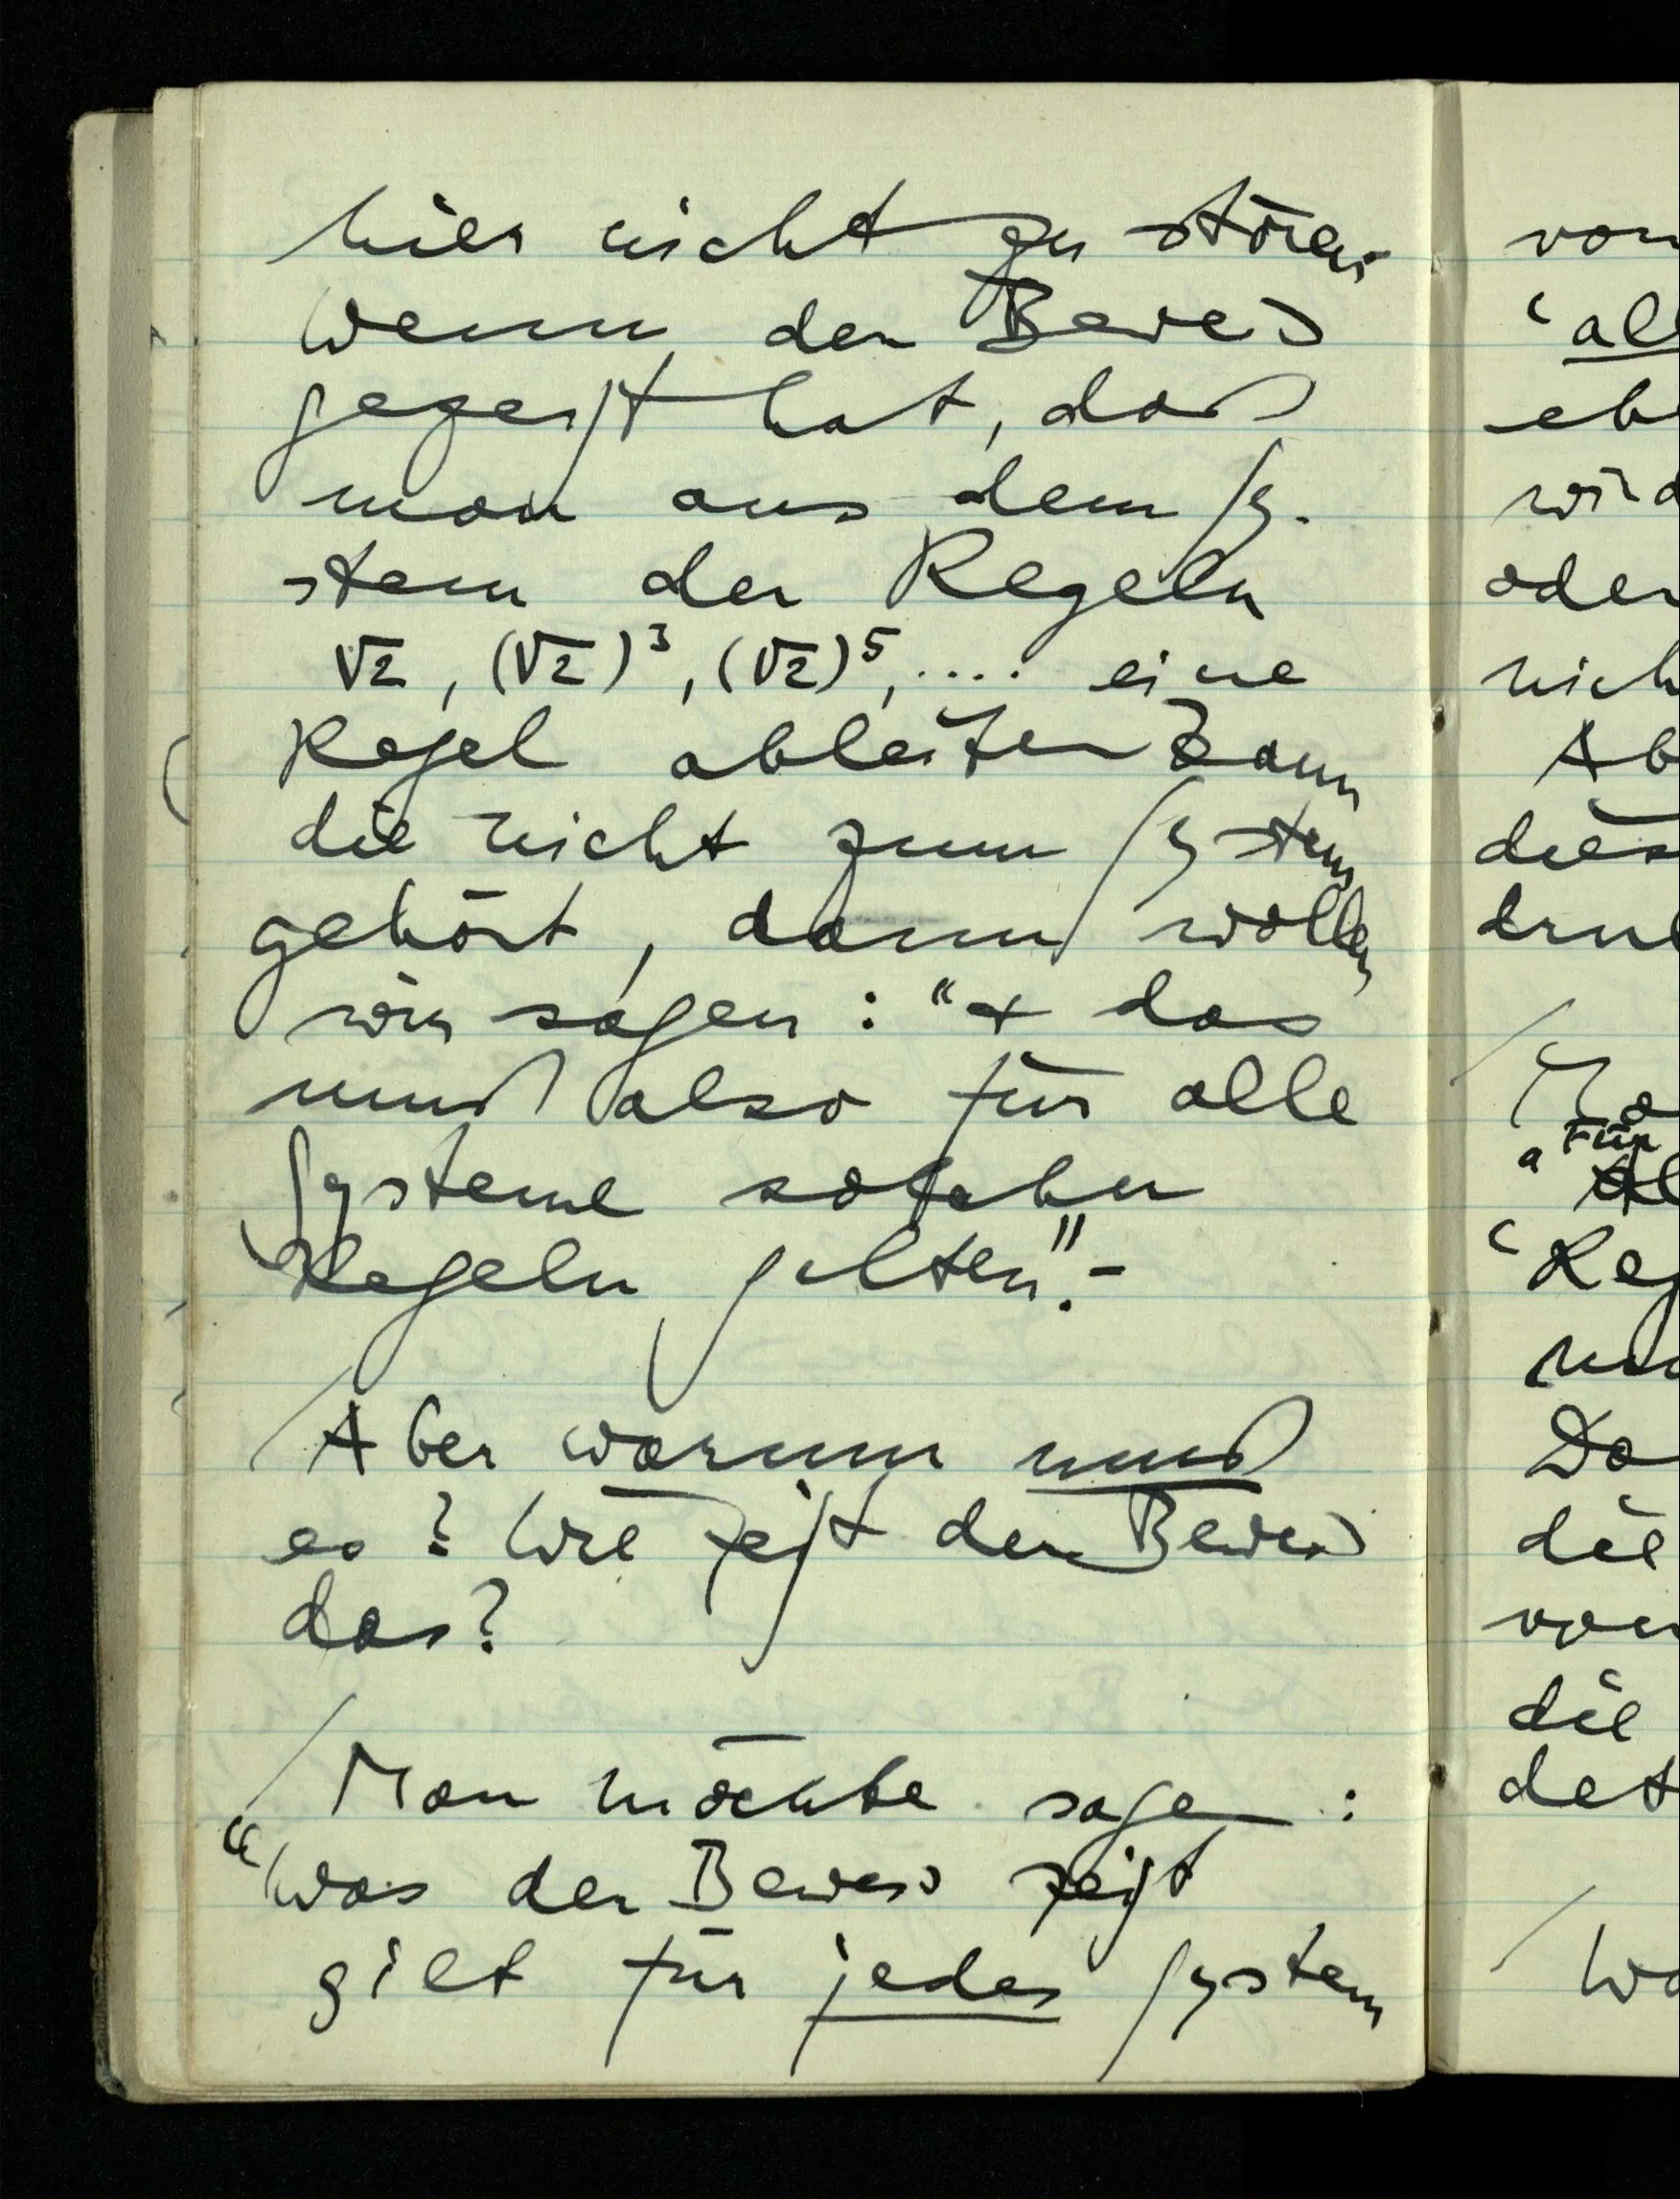 hier nicht zu stören
Wenn der Beweis
gezeigt hat, daß
man aus dem Sy-
stem der Regeln
√2, (√2)³, (√2)⁵, .... eine
Regel ableiten kann
die nicht zum System
gehört, dann wollen
wir sagen: “+ das
muß also für alle
Systeme solcher
Regeln gelten”. –
/ Aber warum muß
es? Wie zeigt der Beweis
das?
/ Man möchte sagen:
“Was der Beweis zeigt
gilt für jedes System
von
‘al
eb
wird
oder
nich
Ab
dies
dru
/
Ma
“Für
‘Reg
Da
die
von
die
det
/ Wa